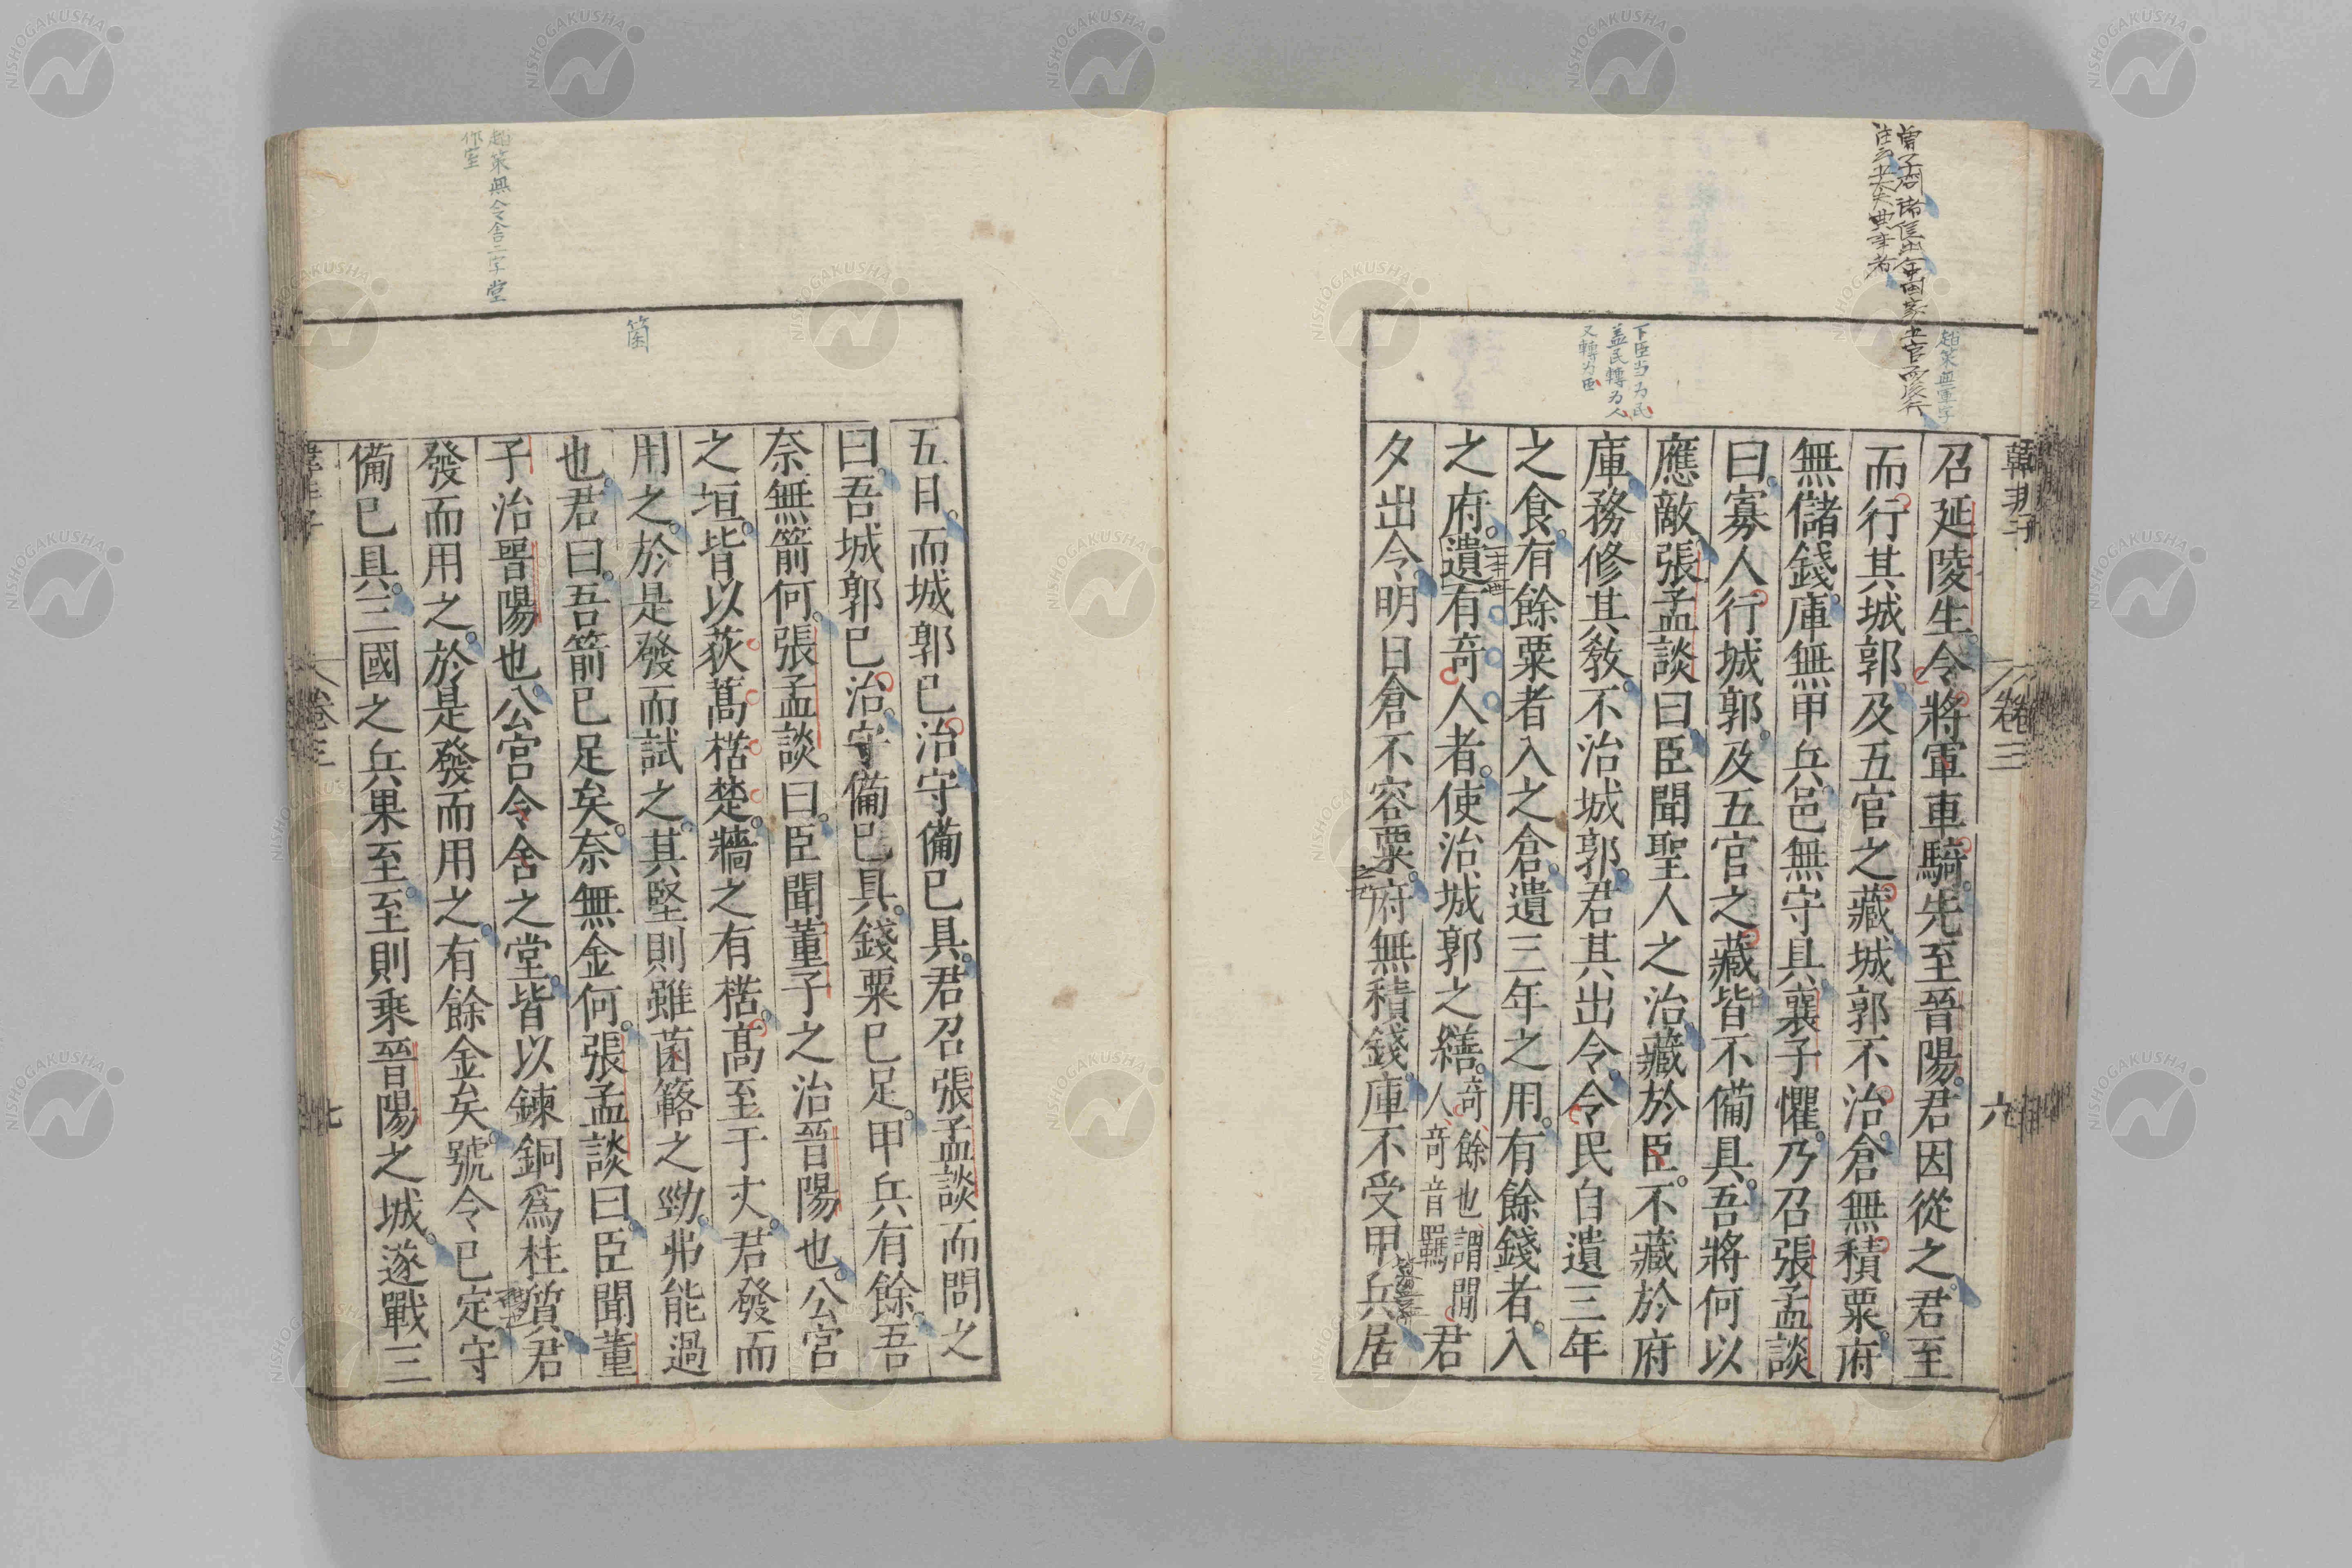 韓非子
卷三
六
召延陵生。令將軍車騎。先至晉陽。君因從之。君至
而行其城郭。及五官之藏。城郭不治。倉無積粟。府
無儲錢。庫無甲兵。邑無守具。襄子懼。乃召張孟談
曰。寡人行城郭。及五官之藏。皆不備具。吾將何以
應敵。張孟談曰。臣聞聖人之治。藏於臣。不藏於府
庫。務修其敎。不治城郭。君其出令。令民自遺三年
之食。有餘粟者。入之倉。遺三年之用。有餘錢者。入
之府。遺有奇人者。使治城郭之繕。奇、餘也、謂閒人、奇音羈君
夕出令。明日倉不容粟。府無積錢。庫不受甲兵。居
趙策無軍字
下臣当为民
盖民轉为人
又轉为臣
五日。而城郭已治。守備已具。君召張孟談而問之
曰。吾城郭已治。守備已具。錢粟已足。甲兵有餘。吾
奈無箭何。張孟談曰。臣聞董子之治晉陽也。公宮
之垣。皆以荻蒿楛楚。牆之有楛。高至于丈。君發而
用之。於是發而試之。其堅則雖菌簵之勁。弗能過
也。君曰。吾箭已足矣。奈無金何。張孟談曰。臣聞董
子治晉陽也。公宮令舍之堂。皆以鍊銅爲柱質。君
發而用之。於是發而用之。有餘金矣。號令已定。守
備已具。三國之兵果至。至則乘晉陽之城。遂戰三
箘
趙策無令舍二字堂
作室
卷三
七
NISHOGAKUSHA